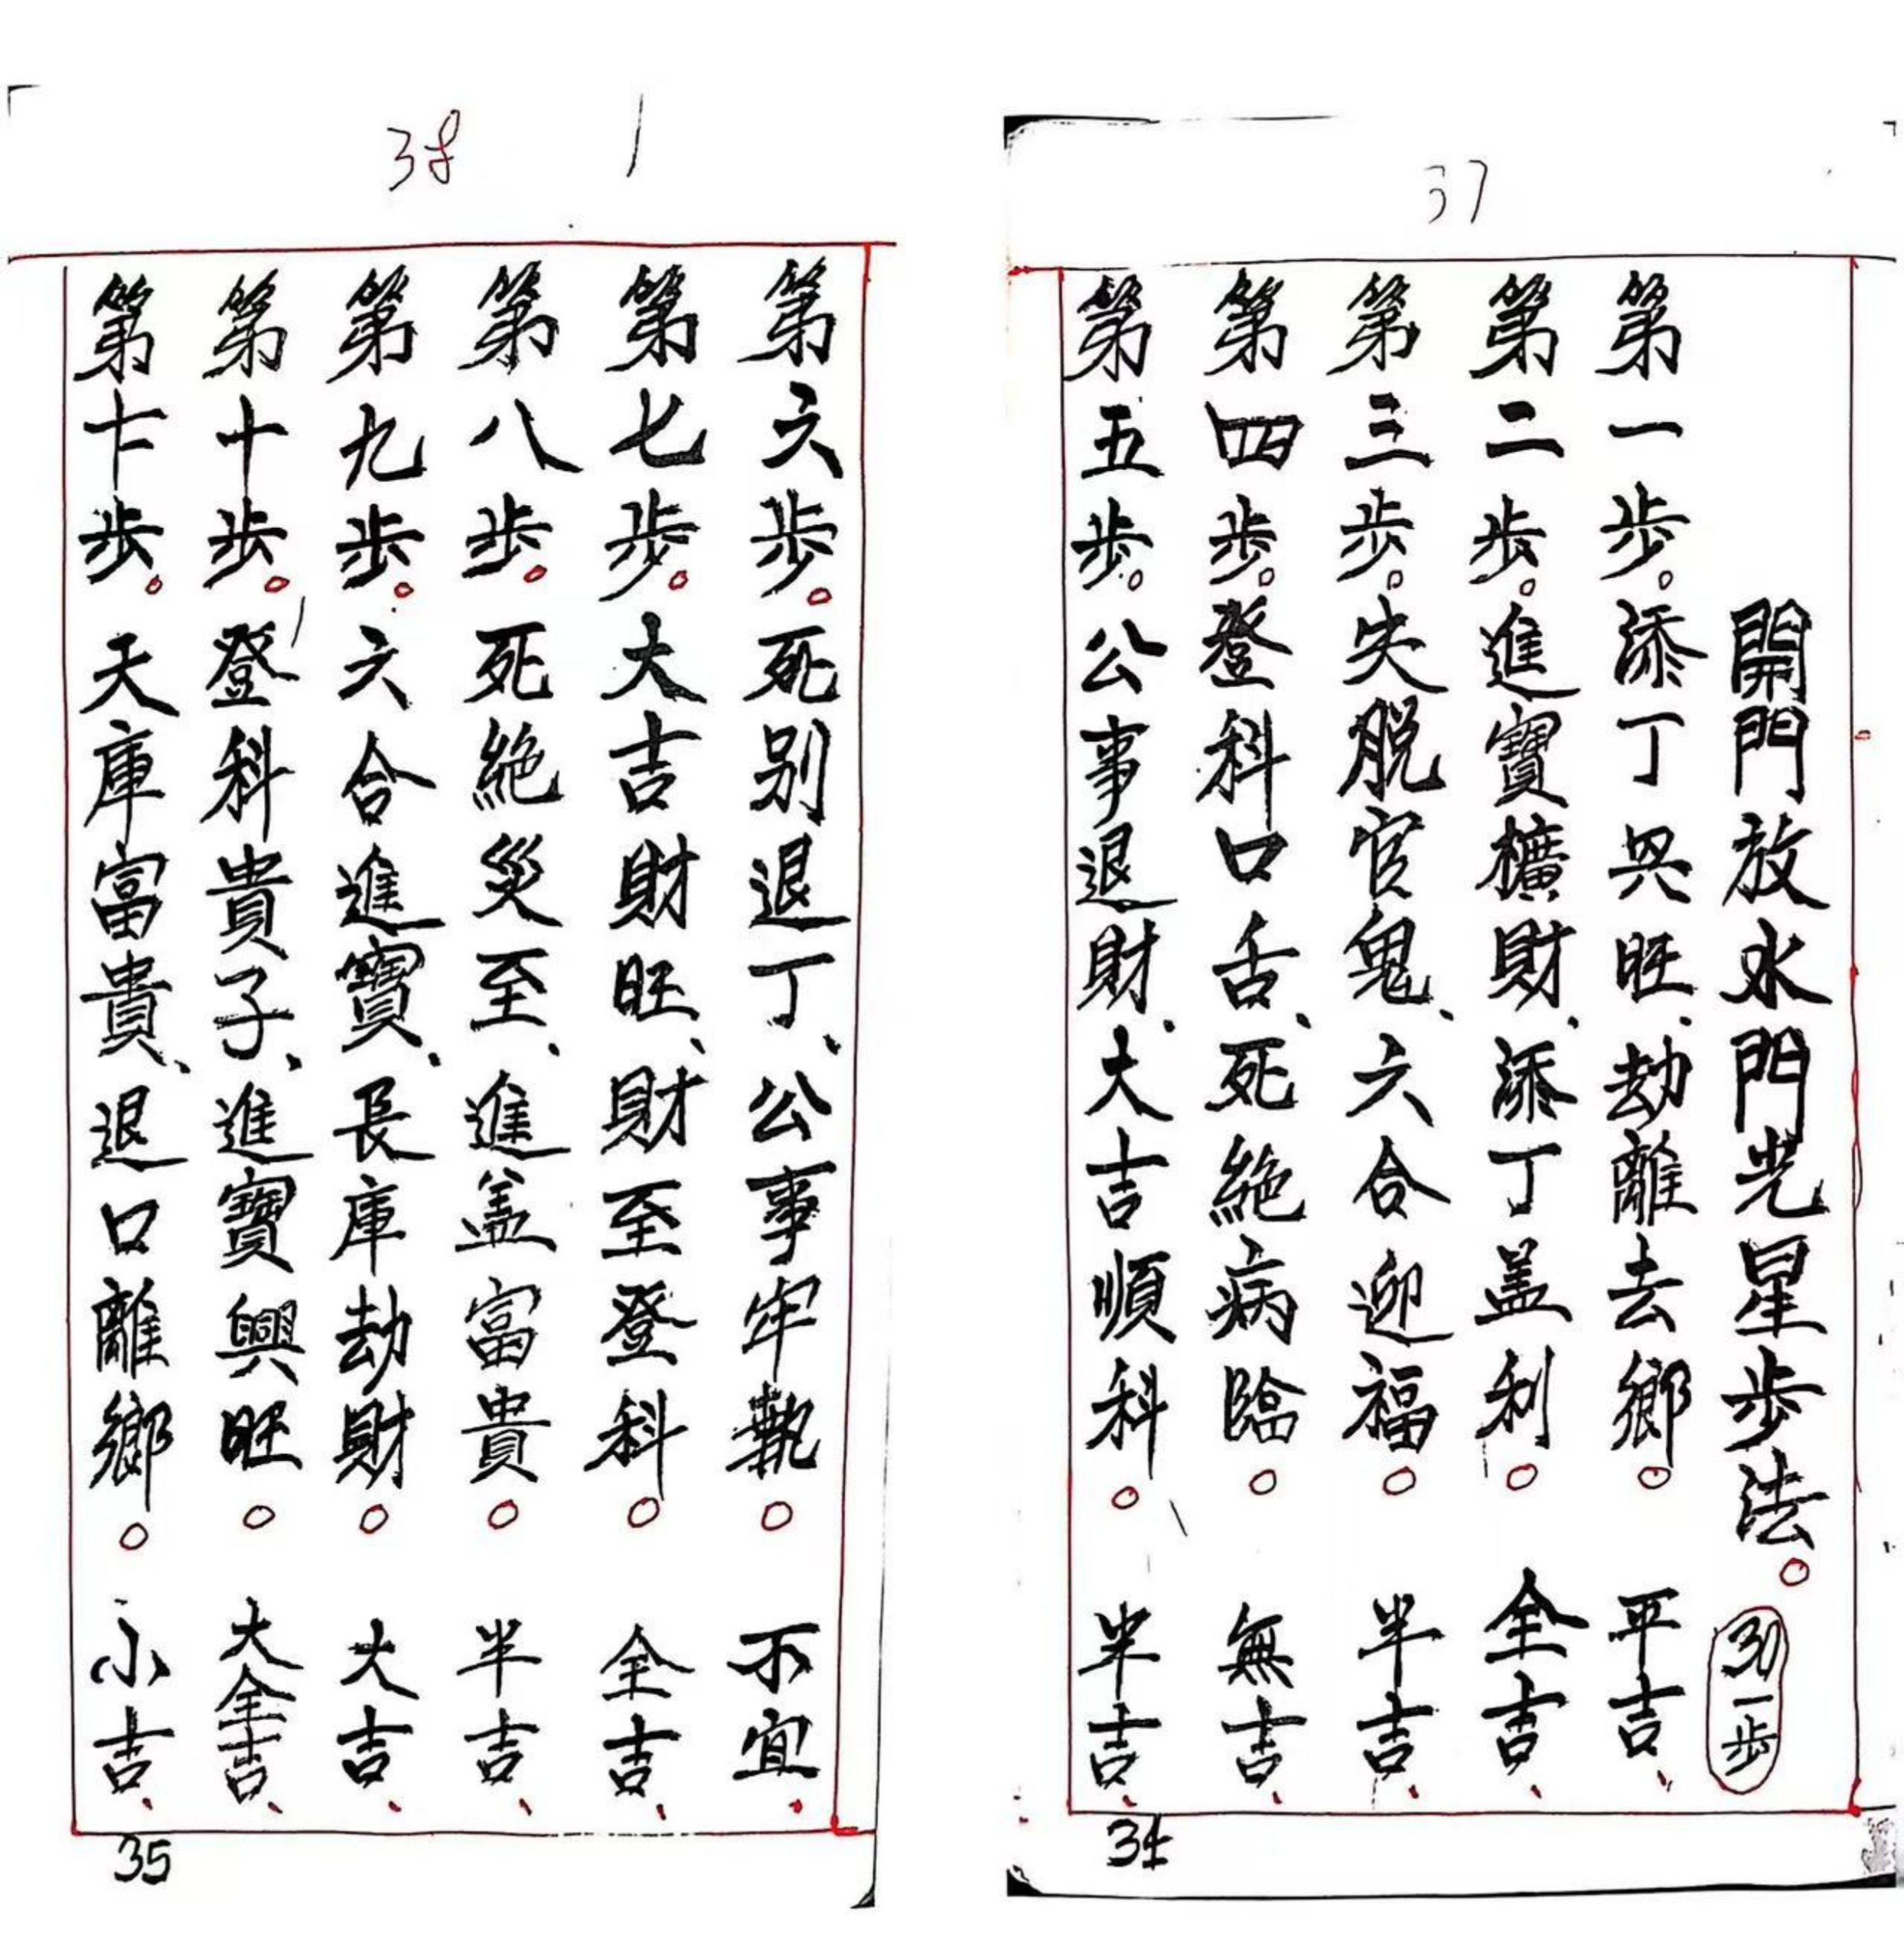 37
開門放水門光星步法。 30一步
第一步。添丁興旺、劫離去鄉。 平吉、
第二步。進寶擴財、添丁蓋利。 全吉、
第三步。失脱官鬼、六合迎福。 半吉、
第四步。登科口舌、死絶病臨。 無吉、
第五步。公事退財、大吉順科。 半吉、
34
38
第六步。死别退丁、公事牢執。 不宜、
第七步。大吉財旺、財至登科。 全吉、
第八步。死絶災至、進益富貴。 半吉、
第九步。六合進寶、長庫劫財。 大吉、
第十步。登科貴子、進寶興旺。 大全吉、
第十一步。天庫富貴、退口離鄉。 小吉、
35